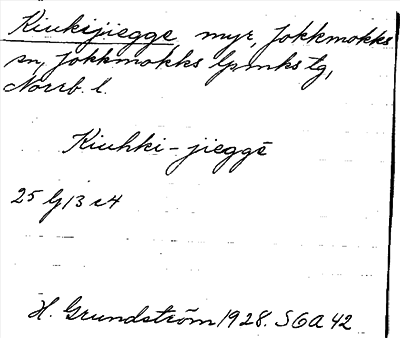 Kiukijiegge myr, Jokkmokks
sn, Jokkmokks lpmks tg,
Norrb. l.
Kiuhki-jieggē
25 G 13 c 4
H. Grundström 1928. SGA 42